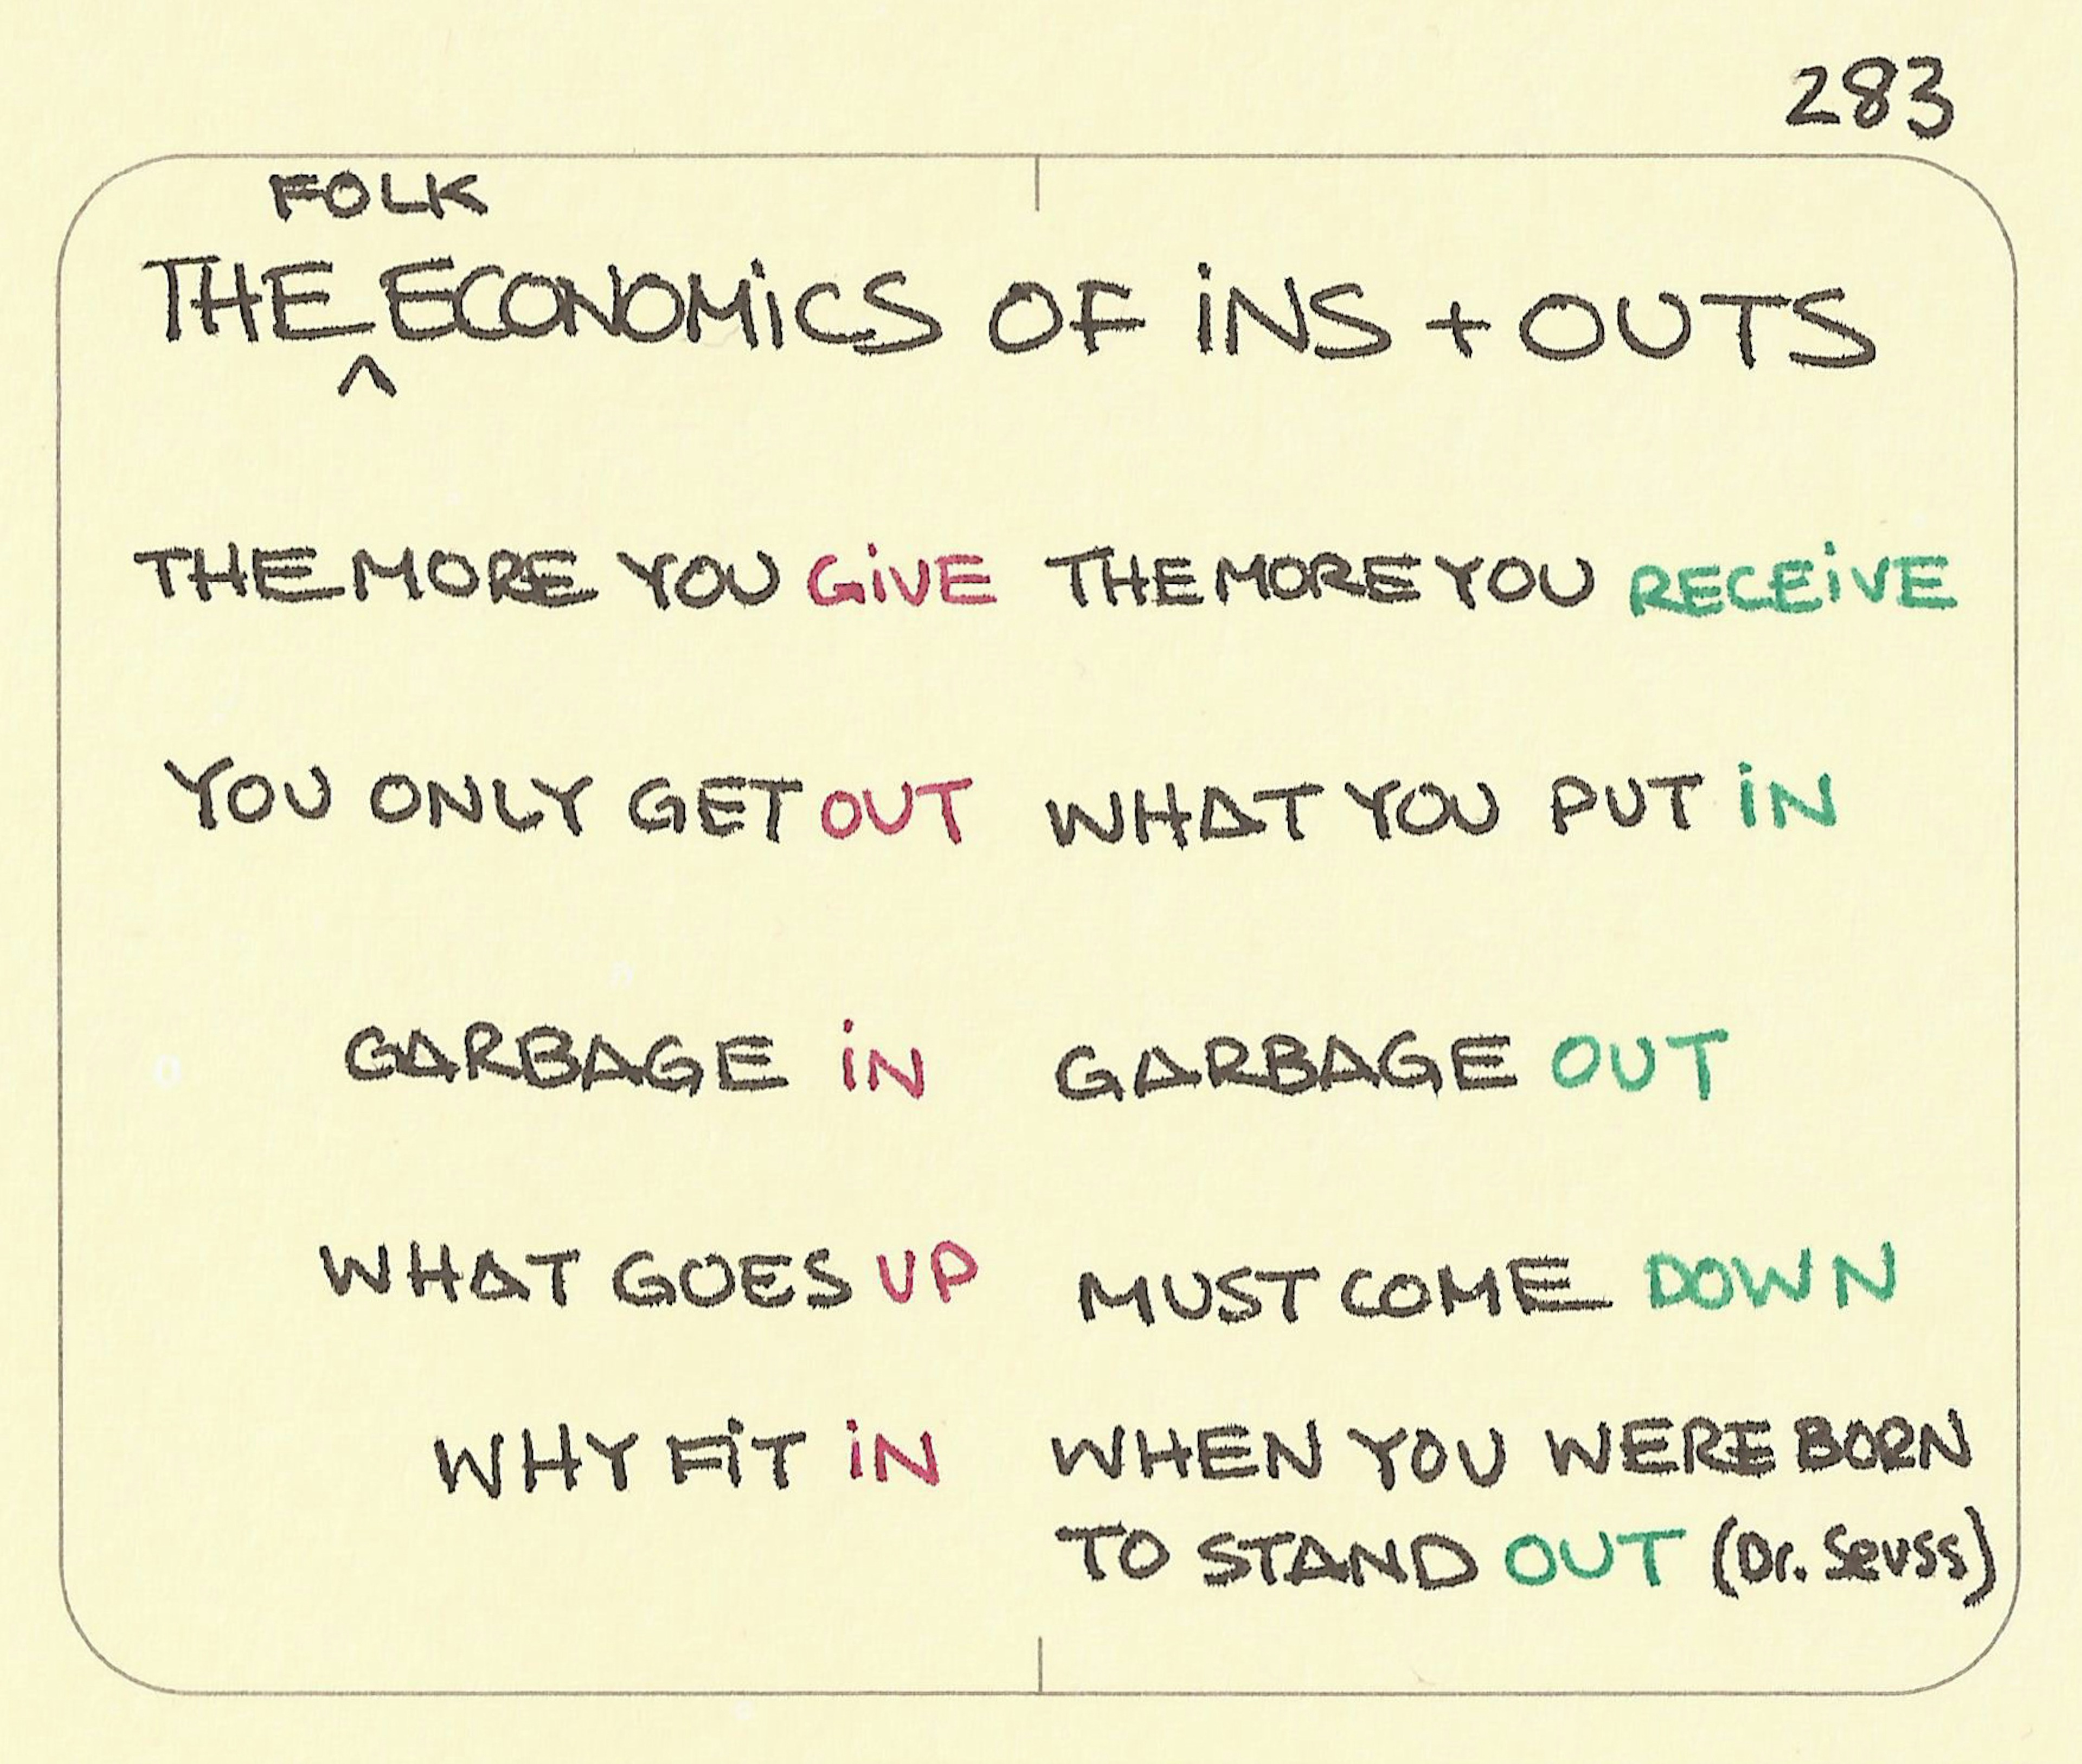 283
FOLK
THE ^ ECONOMICS OF INS + OUTS
THE MORE YOU GIVE THE MORE YOU RECEIVE
YOU ONLY GET OUT WHAT YOU PUT IN
GARBAGE IN GARBAGE OUT
WHAT GOES UP MUST COME DOWN
WHY FIT IN WHEN YOU WERE BORN
TO STAND OUT (Dr. Seuss)